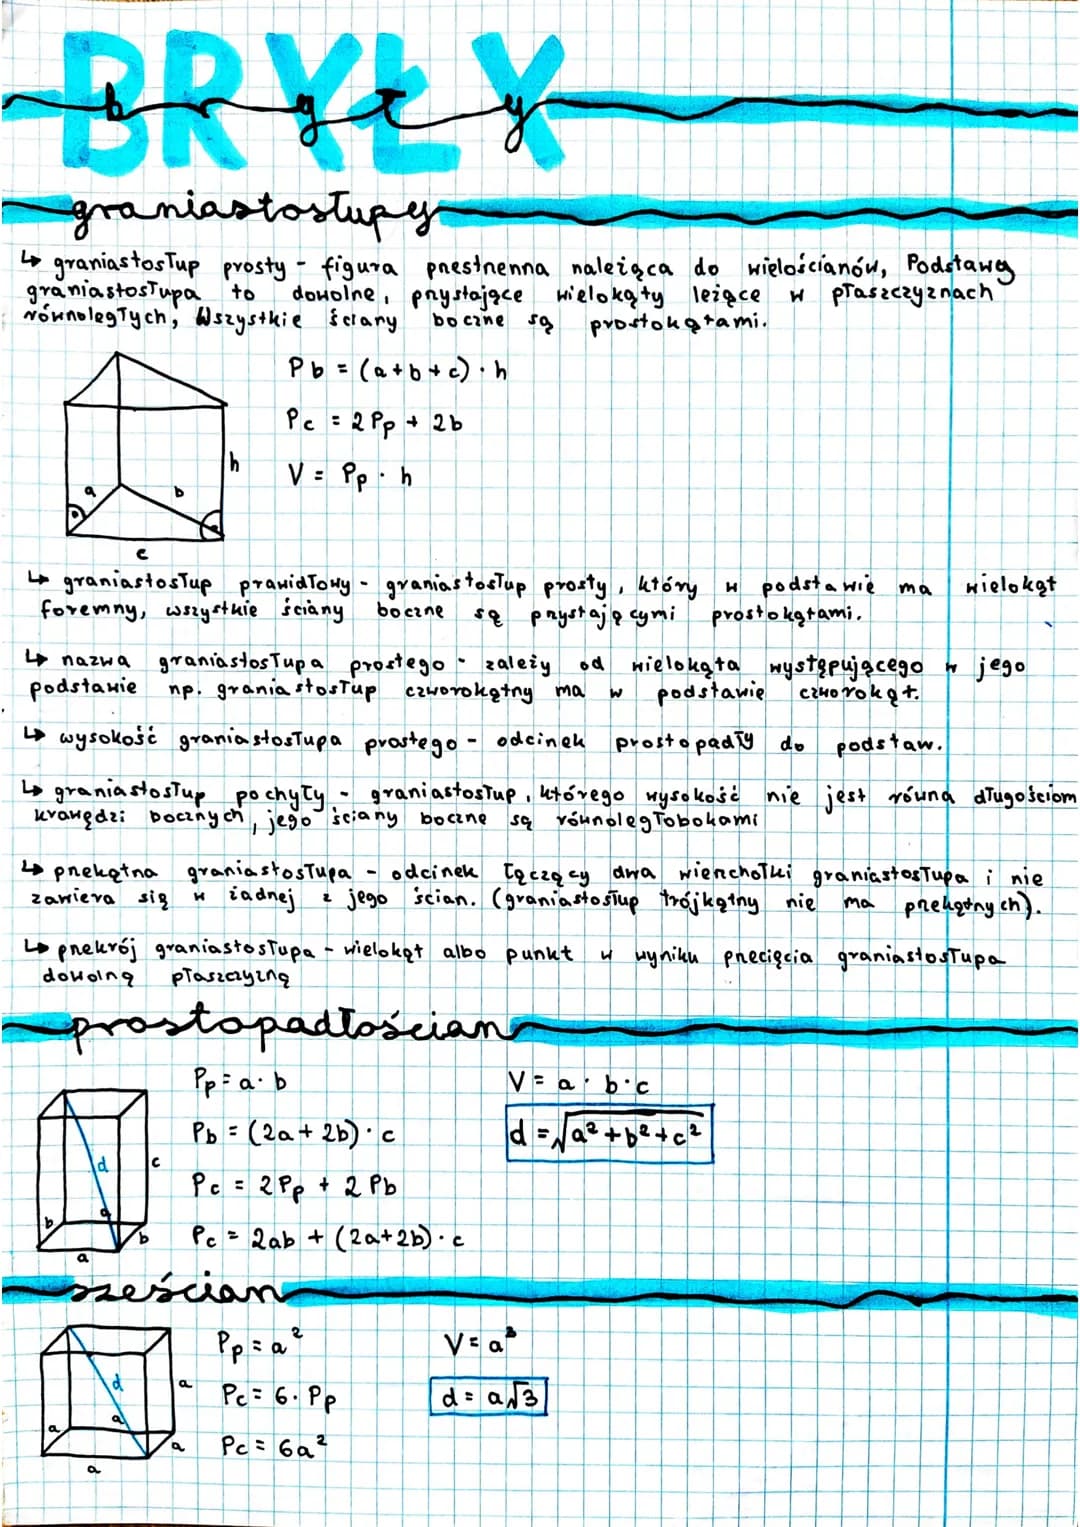 BRYŁY
bryły
graniastosłupy
↳ graniastosłup prosty - figura przestrzenna należąca do wielościanów, Podstawą
graniastosłupa to dowolne, przystające wielokąty leżące w płaszczyznach
równoległych, Wszystkie ściany boczne są prostokątami.
Pb = (a+b+c) · h
Pc = 2Pp + 2b
V = Pp · h
h
a
b
c
↳ graniastosłup prawidłowy - graniastosłup prosty, który w podstawie ma wielokąt
foremny, wszystkie ściany boczne są przystającymi prostokątami.
↳ nazwa graniastosłupa prostego - zależy od wielokąta występującego w jego
podstawie np. graniastosłup czworokątny ma w podstawie czworokąt.
↳ wysokość graniastosłupa prostego - odcinek prostopadły do podstaw.
↳ graniastosłup pochyły - graniastosłup, którego wysokość nie jest równa długościom
krawędzi bocznych, jego ściany boczne są równoległobokami
↳ przekątna graniastosłupa - odcinek łączący dwa wierzchołki graniastosłupa i nie
zawiera się w żadnej z jego ścian. (graniastosłup trójkątny nie ma przekątnych).
↳ przekrój graniastosłupa - wielokąt albo punkt w wyniku przecięcia graniastosłupa
dowolną płaszczyzną
prostopadłościan
Pp = a · b
V = a · b · c
Pb = (2a + 2b) · c
d = √a² + b² + c²
Pc = 2Pp + 2Pb
Pc = 2ab + (2a+2b) · c
d
c
b
a
b
a
sześcian
Pp = a²
V = a³
Pc = 6 · Pp
d = a√3
Pc = 6a²
d
a
a
a
a
a